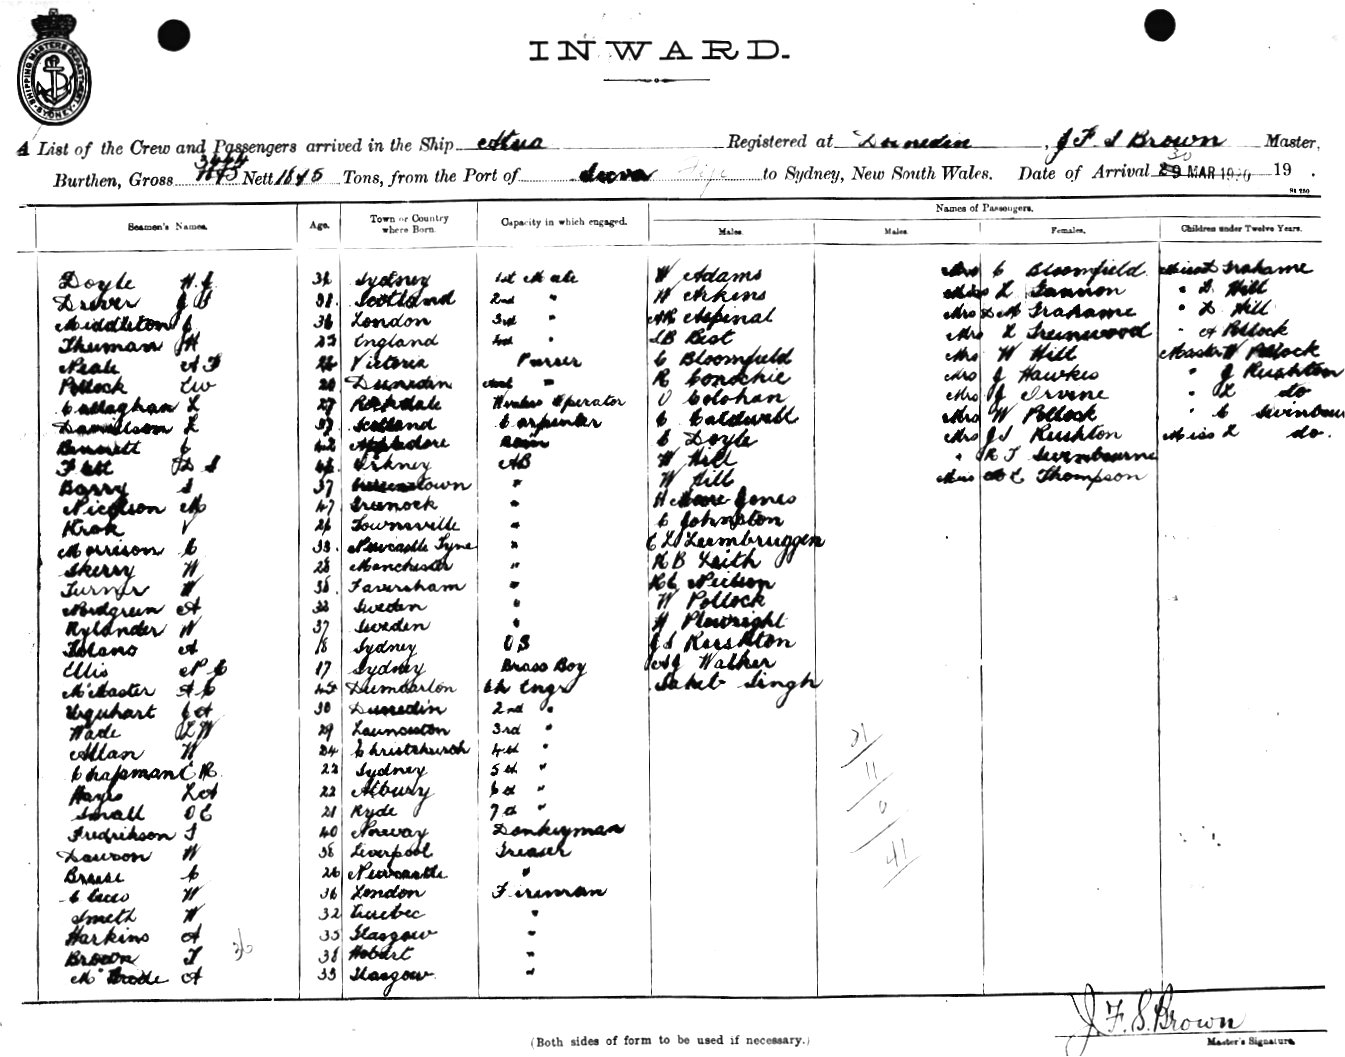 INWARD.
SHIPPING MASTERS DEPARTMENT SYDNEY
A List of the Crew and Passengers arrived in the Ship Atua Registered at Dunedin, J F S Brown Master,
Burthen, Gross 3444 Nett 1645 Tons, from the Port of Suva Fiji to Sydney, New South Wales. Date of Arrival 30 MAR 1920 19 .
Seamen's Names. Age. Town or Country where Born. Capacity in which engaged. Names of Passengers.
Males. Males. Females. Children under Twelve Years.
Doyle H J Sydney 1st Mate W Adams Mrs C Bloomfield Grahame
Driver J S 38 Scotland 2nd " H Arkins L Gannon " D Hill
Middleton C 36 London 3rd " AR Aspinal Mrs D A Grahame " D Hill
Thurman England " SB Best Mrs L Greenwood " A Pollock
Neale A F Victoria Purser C Bloomfield Mrs W Hill Master W Pollock
Pollock LW 20 Dunedin " R Conochie Mrs J Hawkes " J Rushton
Callaghan L 27 Rockdale Wireless Operator V Colohan Mrs J Irvine " L do
Danielson L 37 Scotland Carpenter C Caldwell Mrs W Pollock " C Swinbou
Bennett C 42 Appledore C Doyle Mrs J S Rushton Miss L do.
Flett D S Orkney AB W Hill " R T Swinbourne
Barry S 37 Queenstown " W Hill Miss Thompson
Nicolson M 47 Greenock " H Moore Jones
Krok V 26 Townsville " C Johnston
Morrison C 33. Newcastle Tyne " C L Leembruggen
Skerry W 28 Manchester " K B Leith
Turner W 38 Faversham " R C Neilson
Nordgren A 33 Sweden " W Pollock
Rylander W 37 Sweden " H Plowright
Tolano A 18 Sydney OS J S Rushton
Ellis N C 17 Sydney Brass Boy A J Walker
McMaster A C 45 Dumbarton Ch Engr Saheb Singh
Urquhart C A 30 Dunedin 2nd "
Wade L W 29 Launceston 3rd "
Allan W 24 Christchurch 4th "
Chapman C R 22 Sydney 5th "
Hayes L A 22 Albury 6th "
Small O C 21 Ryde 7th "
Fredrikson T 40 Norway Donkeyman
Dawson W 38 Liverpool Greaser
C 26 Newcastle "
W 36 London Fireman
Smeth W 32 Quebec "
Harkins A 35 Glasgow "
Brown T 38 Hobart "
A 33 Glasgow "
36
21
11
9
41
J. F. S. Brown
Master's Signature.
(Both sides of form to be used if necessary.)